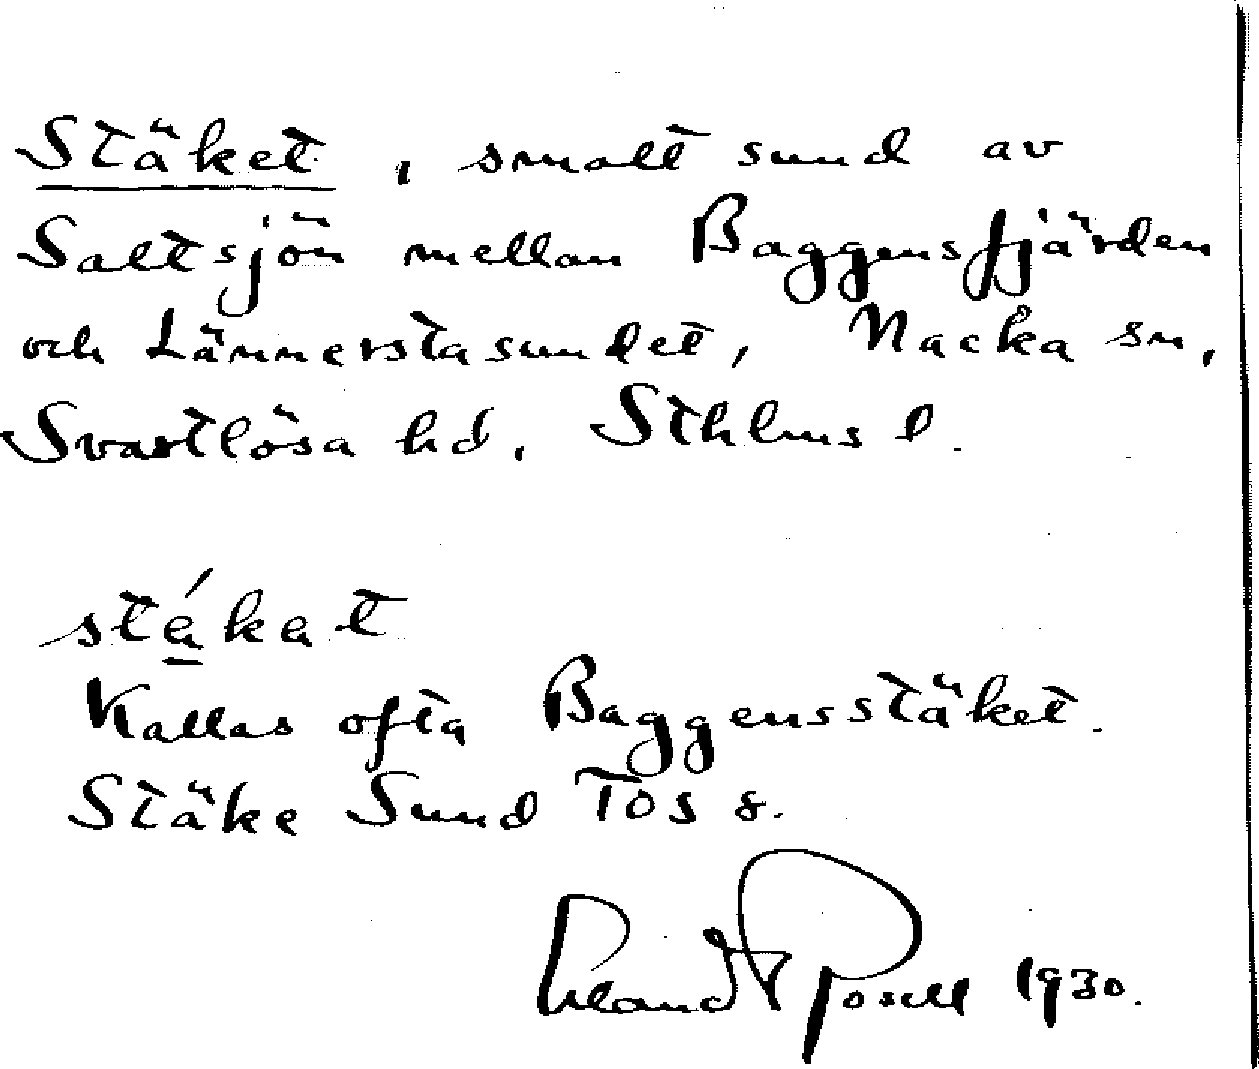 Stäket, smalt sund av
Saltsjön mellan Baggensfjärden
och Lännerstasundet, Nacka sn,
Svartlösa hd, Sthlms l.
sté̱kat
Kallas ofta Baggensstäket.
Stäke Sund TOS 8.
Erland Rosell 1930.